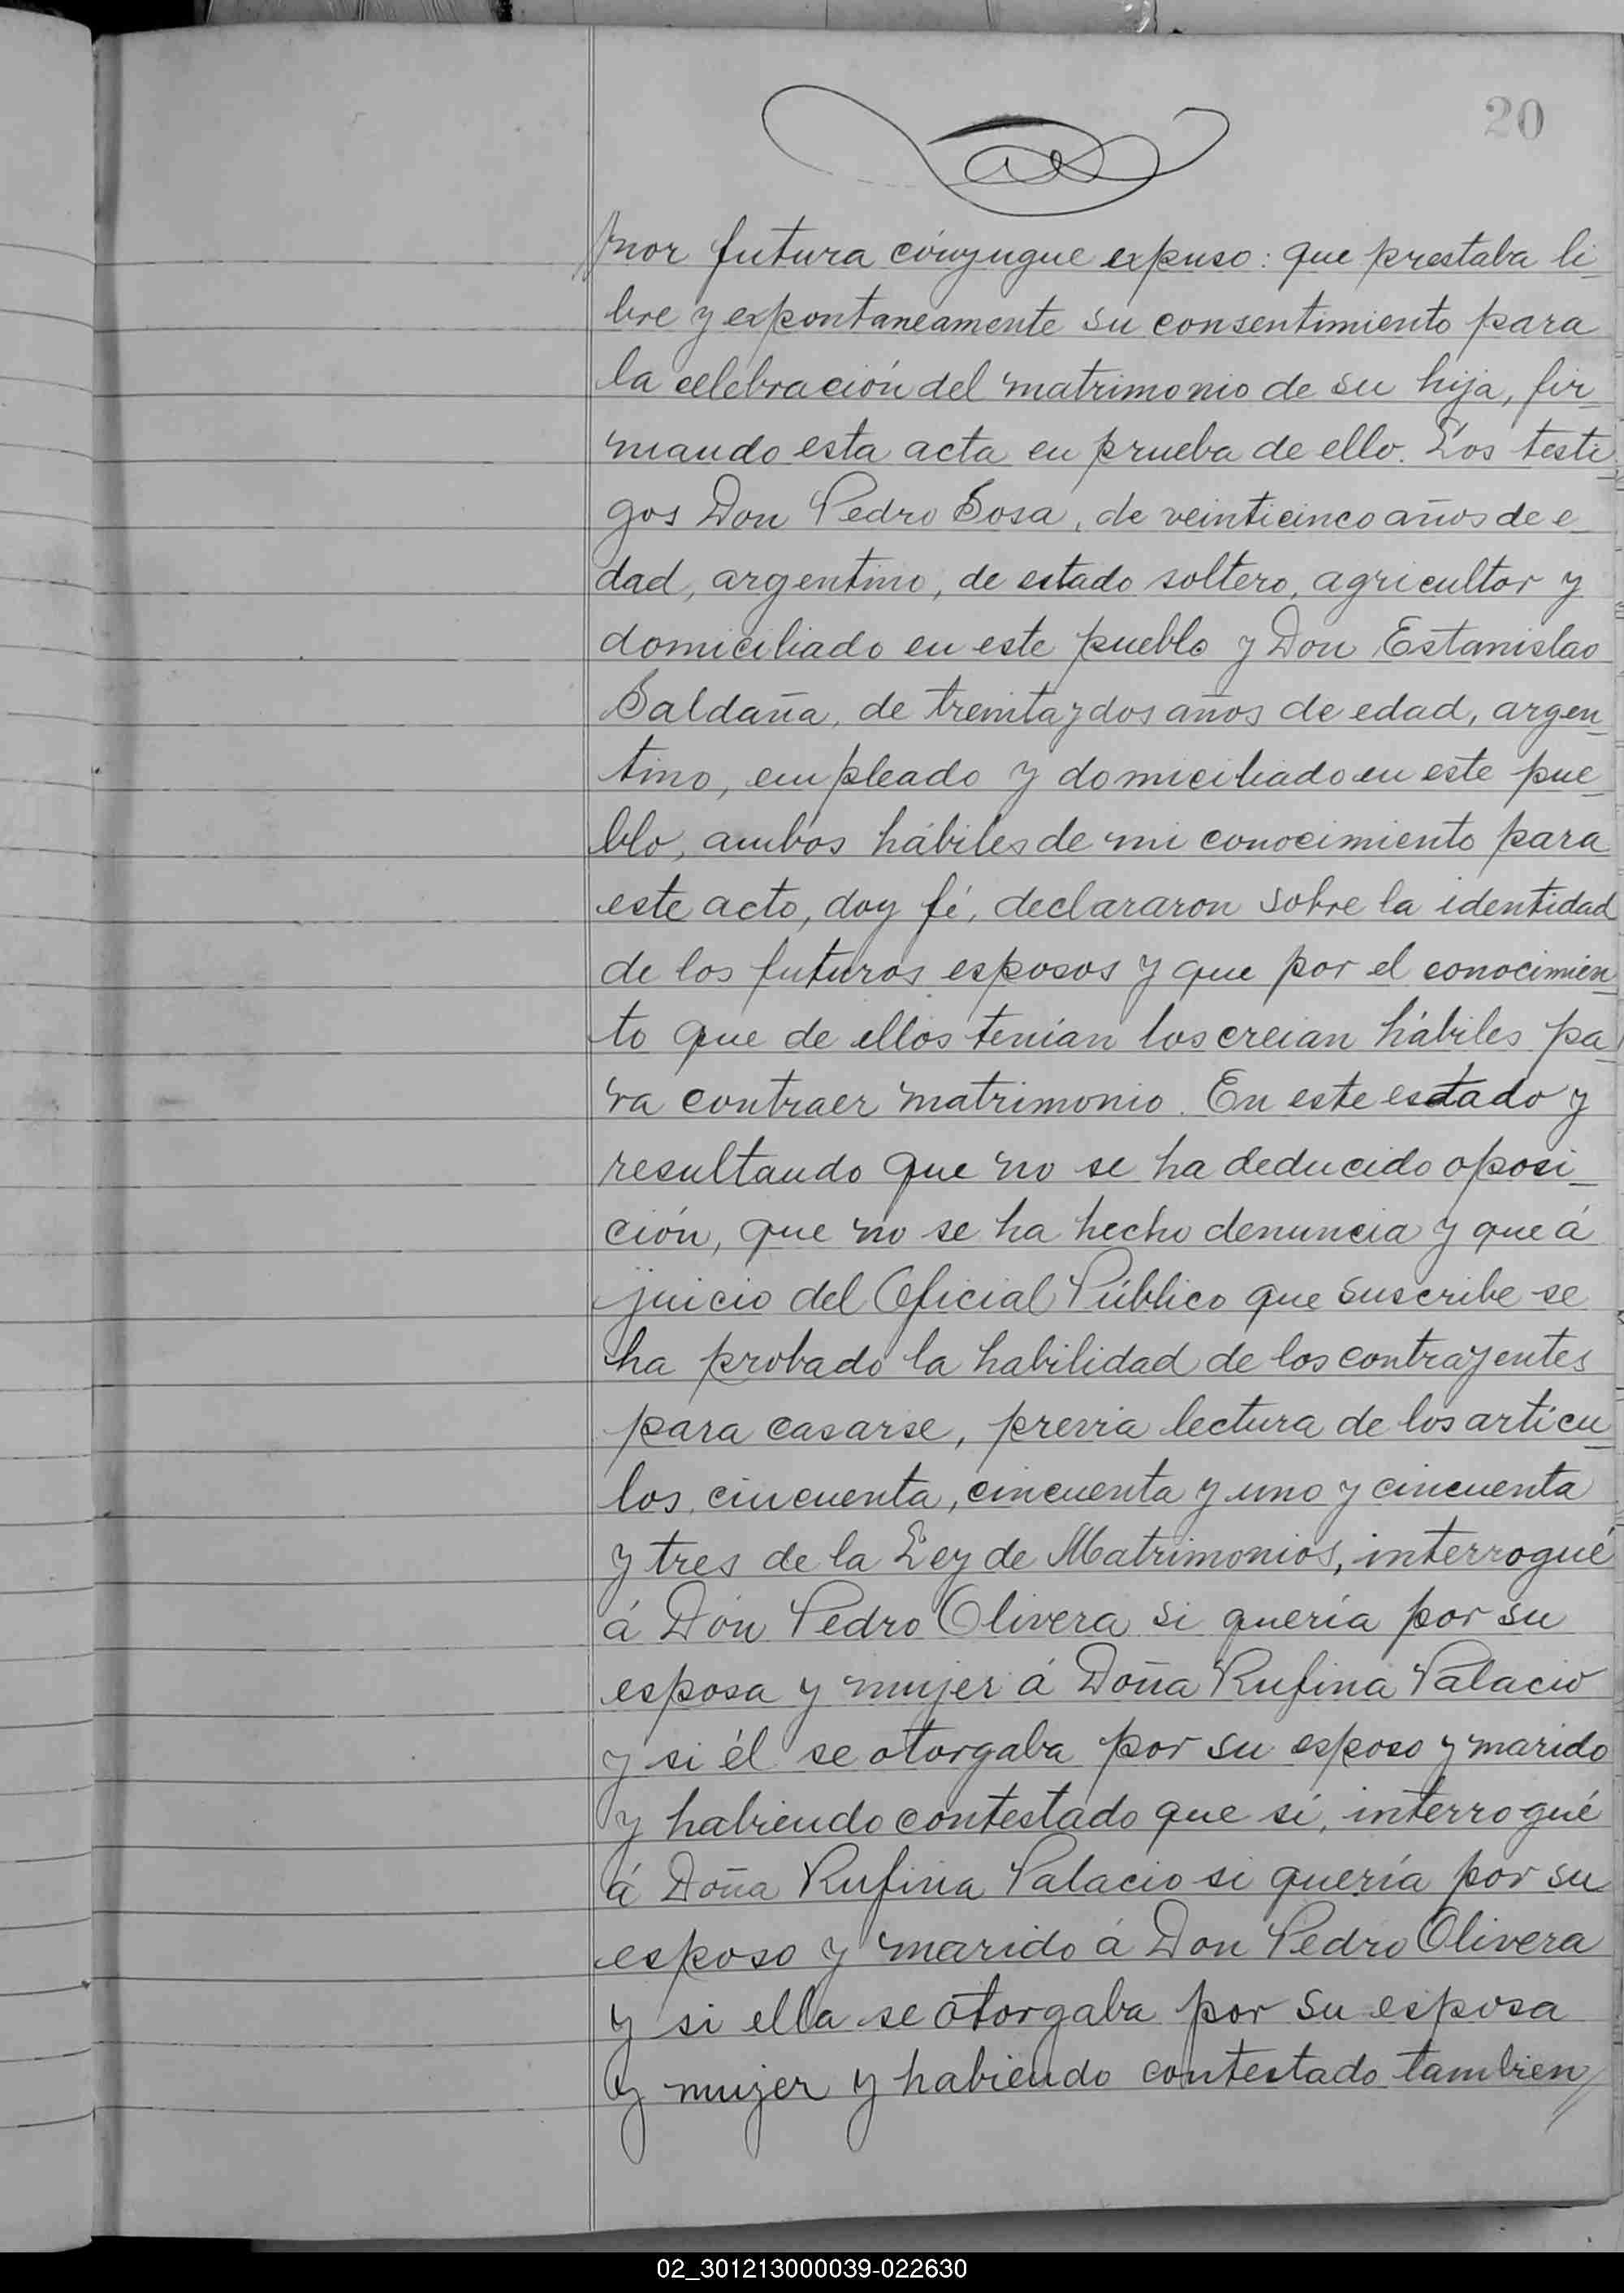 20
nor futura cónyugue expuso: que prestaba li-
bre y expontaneamente su consentimiento para
la celebración del matrimonio de su hija, fir-
mando esta acta en prueba de ello. Los testi-
gos Don Pedro Sosa, de veinticinco años de e-
dad, argentino, de estado soltero, agricultor y
domiciliado en este pueblo y Don Estanislao
Saldaña, de treinta y dos años de edad, argen-
tino, empleado y domiciliado en este pue-
blo, ambos hábiles de mi conocimiento para
este acto, doy fé, declararon sobre la identidad
de los futuros esposos y que por el conocimien-
to que de ellos tenían los creian hábiles pa-
ra contraer matrimonio. En este estado y
resultando que no se ha deducido oposi-
ción, que no se ha hecho denuncia y que á
juicio del Oficial Público que suscribe se
ha probado la habilidad de los contrayentes
para casarse, previa lectura de los artícu-
los, cincuenta, cincuenta y uno y cincuenta
y tres de la Ley de Matrimonios, interrogué
á Don Pedro Olivera si quería por su
esposa y mujer á Doña Rufina Palacio
y si él se otorgaba por su esposo y marido
y habiendo contestado que sí, interrogué
á Doña Rufina Palacio si quería por su
esposo y marido á Don Pedro Olivera
y si ella se otorgaba por su esposa
y mujer y habiendo contestado tambien
02_301213000039-022630